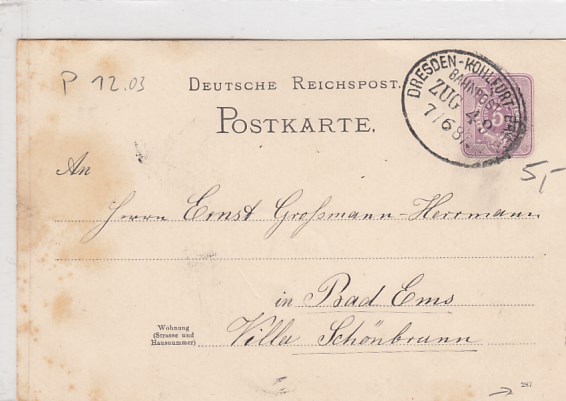 P 12.03
DEUTSCHE REICHSPOST.
POSTKARTE.
DRESDEN-KOHLFURT
BAHNPOST
ZUG
7/6 87
5,-
An
Herrn Ernst Großmann-Herrmann
in Bad Ems
Wohnung
(Strasse und
Hausnummer)
Villa Schönbrunn
287